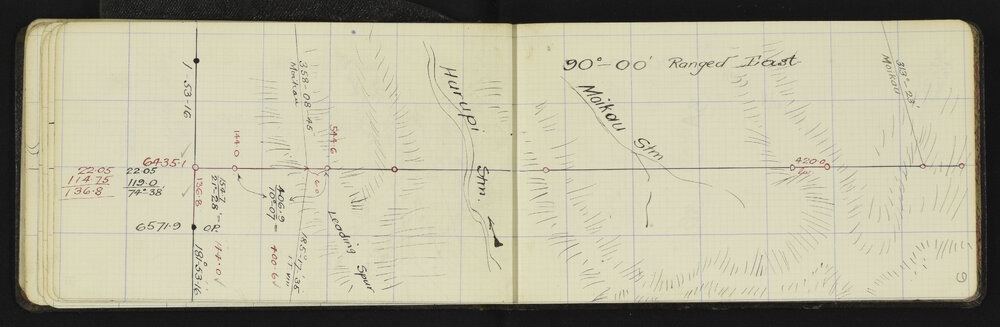 90°-00' Ranged East
Hurupi Stm.
Moikau Stm
313°-23'
Moikau
4200
1.53-16
358-08-45
Moikau
144.0
544.6
6435.1
22.05
114.75
136.8
22.05
119.0
74°38
136.8
154.7
21°-28
406.9
10°-07
400.6
Leading Spur
185°-17'-35
6571.9 OP.
114.0
181°-53-16